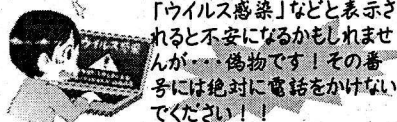 「ウイルス感染」などと表示さ
れると不安になるかもしれませ
んが・・・偽物です！その番
号には絶対に電話をかけない
でください！！